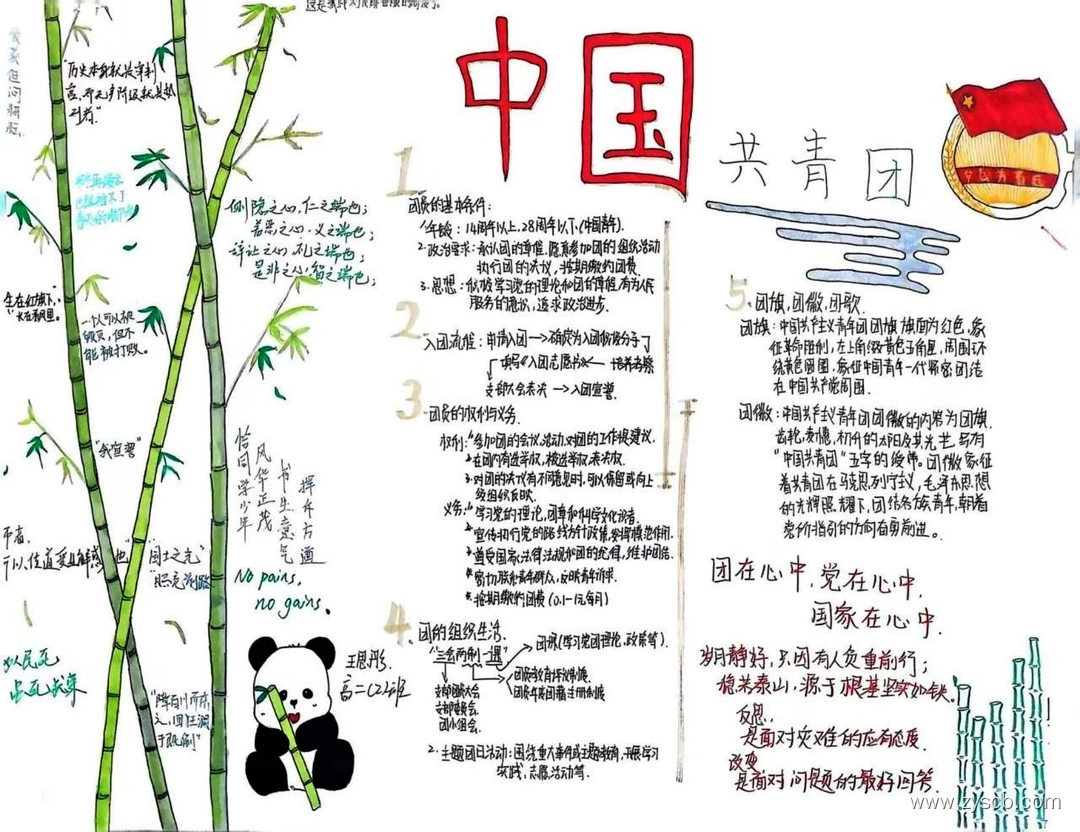 中国
共青团
"历史本身就是审判
恻隐之心,仁之端也;
羞恶之心,义之端也;
辞让之心,礼之端也;
是非之心,智之端也;
"生在红旗下,
长在春风里。
一个人可以被
毁灭,但不
能被打败。
"我宣誓"
恰同学少年
风华正茂
书生意气
挥斥方遒
"国士之光"
No pains,
no gains.
王思彤
高二(2)班
1
团员的基本条件:
1.年龄:14周岁以上,28周岁以下,(中国青年).
2.政治要求:承认团的章程,愿意参加团的组织活动
执行团的决议,按期缴纳团费
3.思想:积极学习党的理论和团的章程,有为人民
服务的意识,追求政治进步.
2
入团流程:申请入团→确定为入团积极分子
填写《入团志愿书》←培养考察
支部大会表决→入团宣誓.
3
团员的权利与义务
权利:1.参加团的会议,活动,对团的工作提建议.
2.在团内有选举权,被选举权,表决权.
3.对团的决议有不同意见时,可以保留或向上
级组织反映.
义务:1.学习党的理论,团章和科学文化知识.
2.宣传执行党的路线方针政策,发挥模范作用.
3.遵守国家法律法规和团的纪律,维护团结.
4.密切联系青年群众,反映青年诉求.
5.按期缴纳团费(0.1-1元每月)
4
团的组织生活.
1."三会两制一课"
团课(学习党团理论,政策等).
团员教育评议制度.
团员年度团籍注册制度
支部团员大会
支部委员会.
团小组会.
2.主题团日活动:围绕重大事件或主题教育,开展学习
实践,志愿活动等.
5.团旗,团徽,团歌.
团旗:中国共产主义青年团团旗旗面为红色,象
征革命胜利,左上角缀黄色五角星,周围环
绕黄色圆圈,象征中国青年一代紧密团结
在中国共产党周围.
团徽:中国共产主义青年团团徽的内容为团旗.
齿轮,麦穗,初升的太阳及其光芒,写有
"中国共青团"五字的绶带。团徽象征
着共青团在马克思列宁主义,毛泽东思想
的光辉照耀下,团结各族青年,朝着
党所指引的方向奋勇前进。
团在心中,党在心中,
国家在心中.
岁月静好,只因有人负重前行;
稳若泰山,源于根基坚实如铁.
反思,
是面对灾难的应有态度.
改变
是面对问题的最好回答.
www.zyscb.com